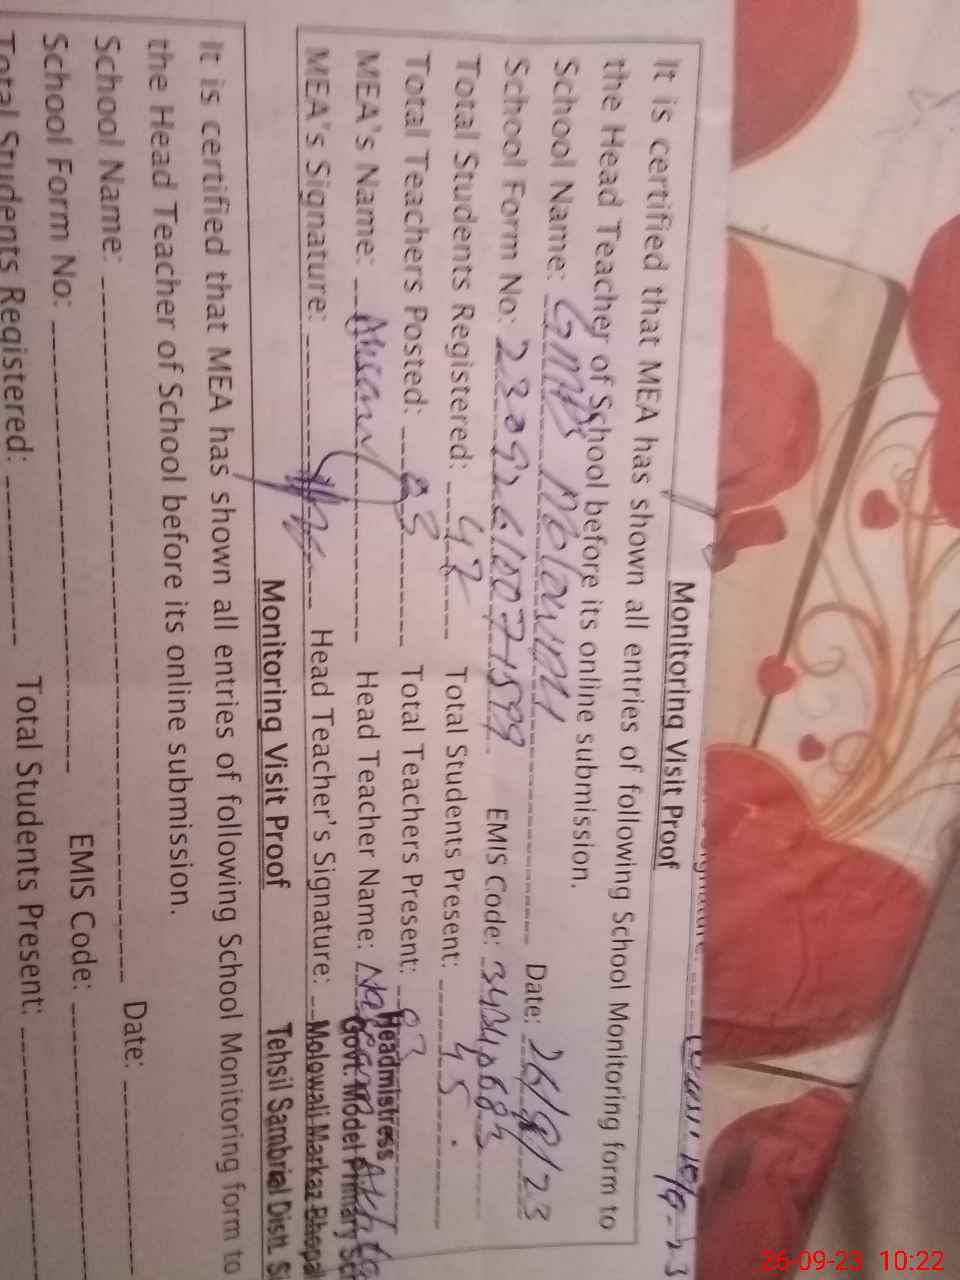 10/9-23
Monitoring Visit Proof
It is certified that MEA has shown all entries of following School Monitoring form to
the Head Teacher of School before its online submission.
School Name: GMPS Molowali Date: 26/9/23
School Form No: EMIS Code:
Total Students Registered: 47 Total Students Present: 45
Total Teachers Posted: 03 Total Teachers Present: 03
MEA's Name: Head Teacher Name:
MEA's Signature: Head Teacher's Signature:
Headmistress
Govt. Model Primary Sch
Molowali Markaz Bhopal
Tehsil Sambrial Distt. Si
Monitoring Visit Proof
It is certified that MEA has shown all entries of following School Monitoring form to
the Head Teacher of School before its online submission.
School Name: Date:
School Form No: EMIS Code:
Total Students Registered: Total Students Present:
26-09-23 10:22